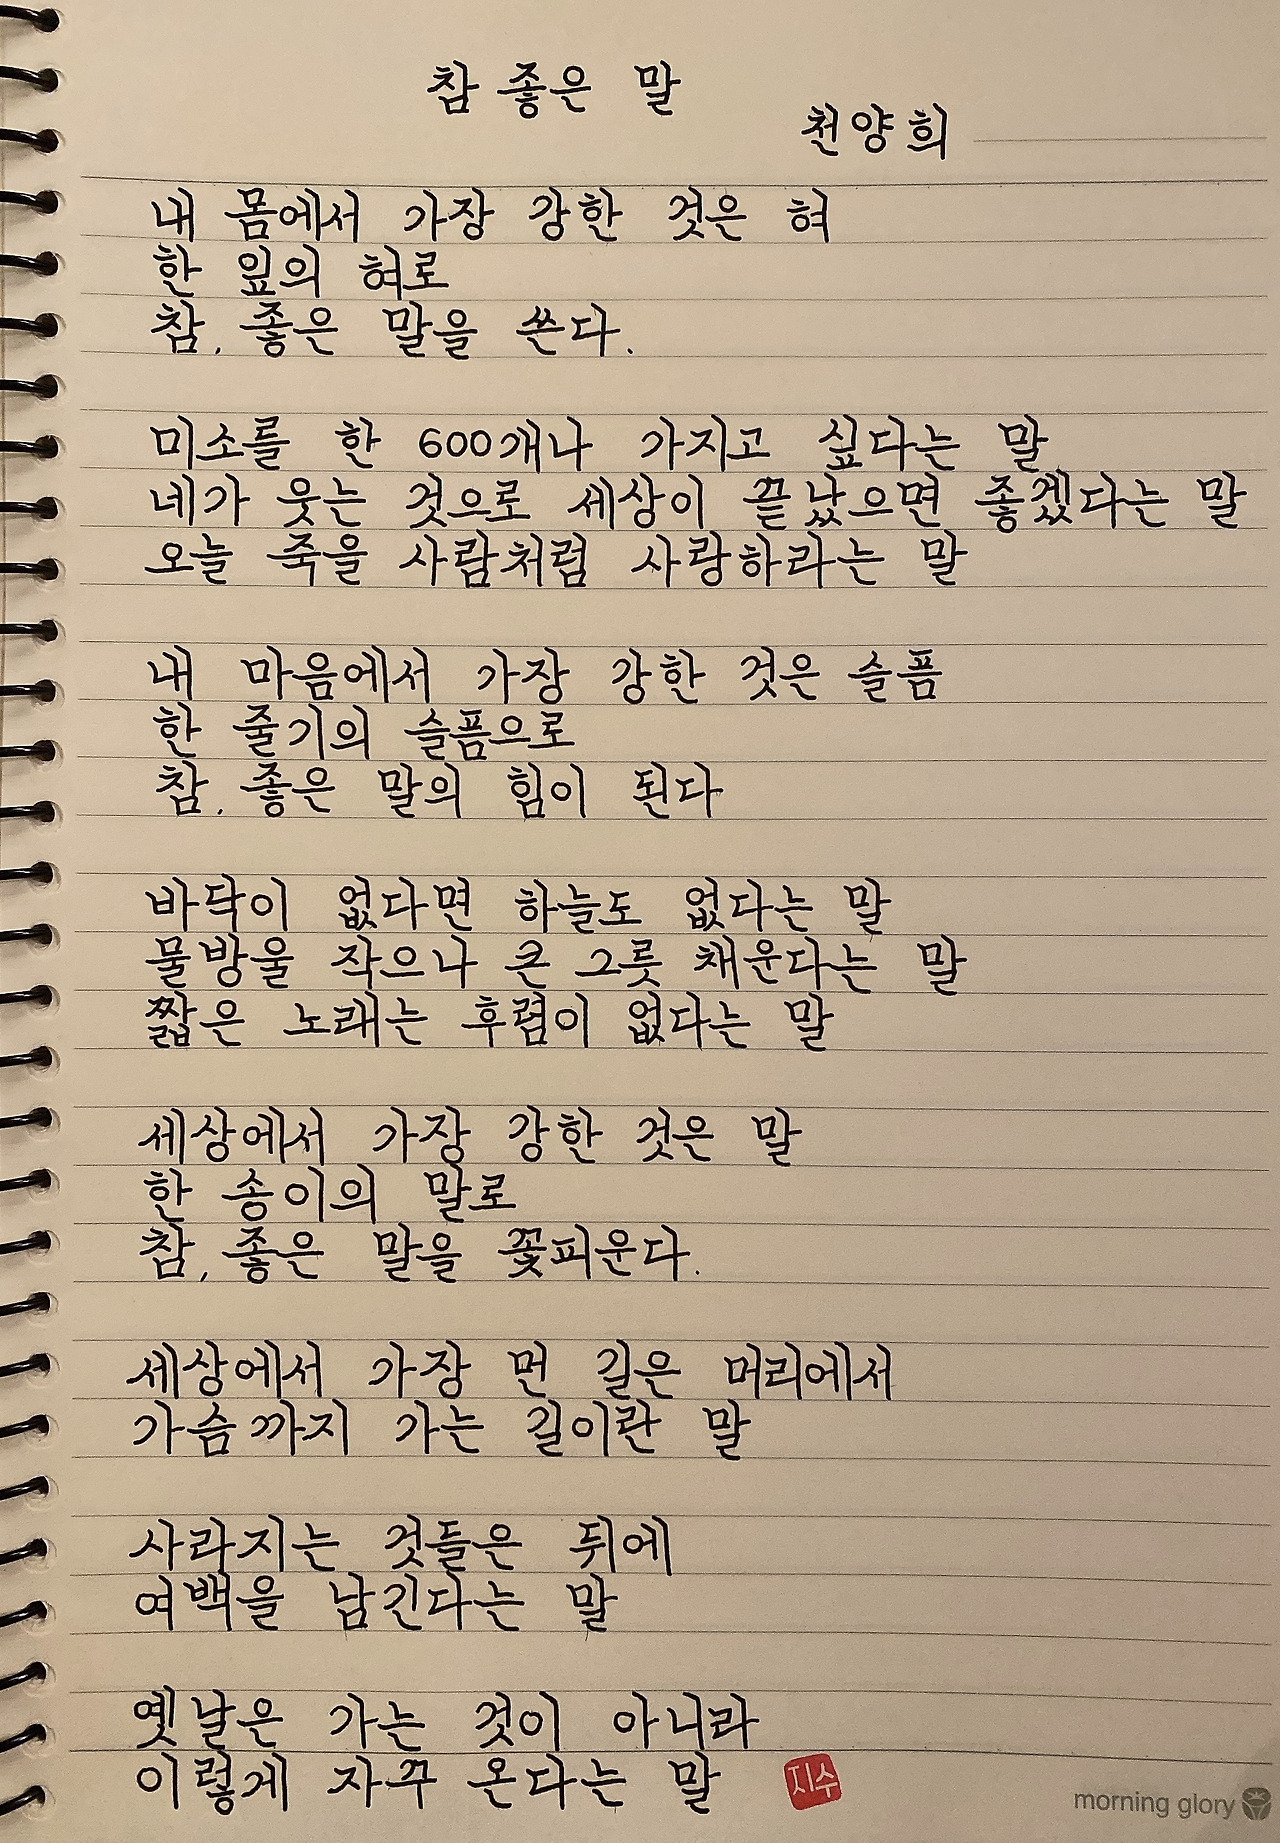 참 좋은 말
천양희
내 몸에서 가장 강한 것은 혀
한 잎의 혀로
참, 좋은 말을 쓴다.
미소를 한 600개나 가지고 싶다는 말
네가 웃는 것으로 세상이 끝났으면 좋겠다는 말
오늘 죽을 사람처럼 사랑하라는 말
내 마음에서 가장 강한 것은 슬픔
한 줄기의 슬픔으로
참, 좋은 말의 힘이 된다
바닥이 없다면 하늘도 없다는 말
물방울 작으나 큰 그릇 채운다는 말
짧은 노래는 후렴이 없다는 말
세상에서 가장 강한 것은 말
한 송이의 말로
참, 좋은 말을 꽃피운다.
세상에서 가장 먼 길은 머리에서
가슴까지 가는 길이란 말
사라지는 것들은 뒤에
여백을 남긴다는 말
옛날은 가는 것이 아니라
이렇게 자꾸 온다는 말
지수
morning glory